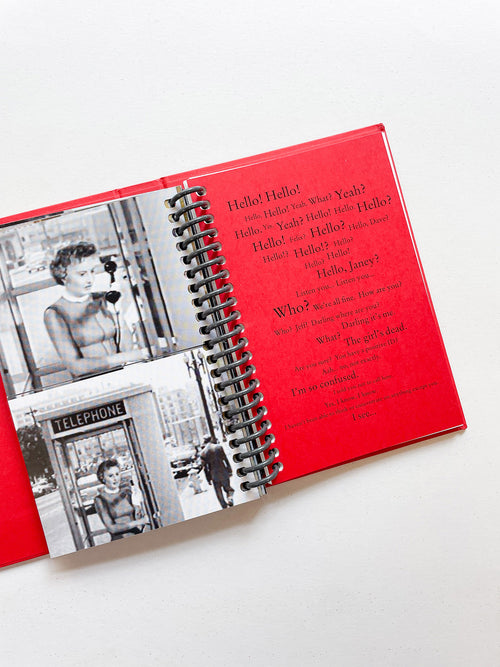 TELEPHONE
Hello! Hello!
Hello, Hello! Yeah, What? Yeah?
Hello, Yo, Yeah? Hello! Hello, Hello?
Hello! Hello? Hello, Dave?
Hello!? Hello!? Hello?
Hello? Hello!
Hello, Janey?
Listen you - Listen you ...
Who? We're all fine. How are you?
Who? Jeff? Darling where are you?
Darling it's me.
What? The girl's dead.
Are you sure? You have a positive ID
I'm so confused.
Yes, I know, I know.
I see...